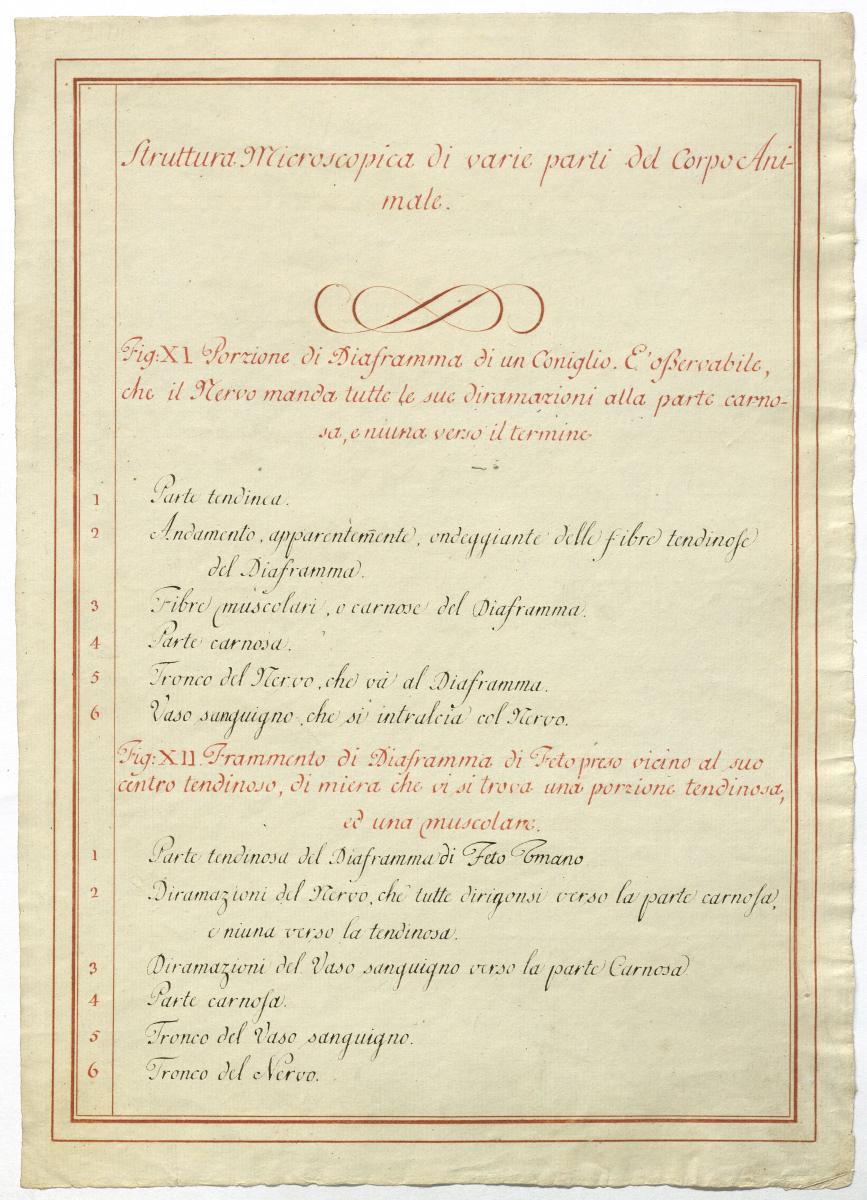 Struttura Microscopica di varie parti del Corpo Ani-
male.
Fig: XI. Porzione di Diaframma di un Coniglio. E' oſservabile,
che il Nervo manda tutte le sue diramazioni alla parte carno-
sa, e niuna verso il termine
1 Parte tendinea.
2 Andamento, apparentem̄ente, ondeggiante delle fibre tendinoſe
del Diaframma.
3 Fibre muscolari, o carnose del Diaframma.
4 Parte carnosa.
5 Tronco del Nervo, che và al Diaframma.
6 Vaso sanguigno, che si intralcia col Nervo.
Fig: XII. Frammento di Diaframma di Feto preso vicino al suo
centro tendinoso, di miera che vi si trova una porzione tendinosa,
ed una muscolare.
1 Parte tendinosa del Diaframma di Feto Umano
2 Diramazioni del Nervo, che tutte dirigonsi verso la parte carnoſa,
e niuna verso la tendinosa.
3 Diramazioni del Vaso sanguigno verso la parte Carnosa
4 Parte carnoſa.
5 Tronco del Vaso sanguigno.
6 Tronco del Nervo.